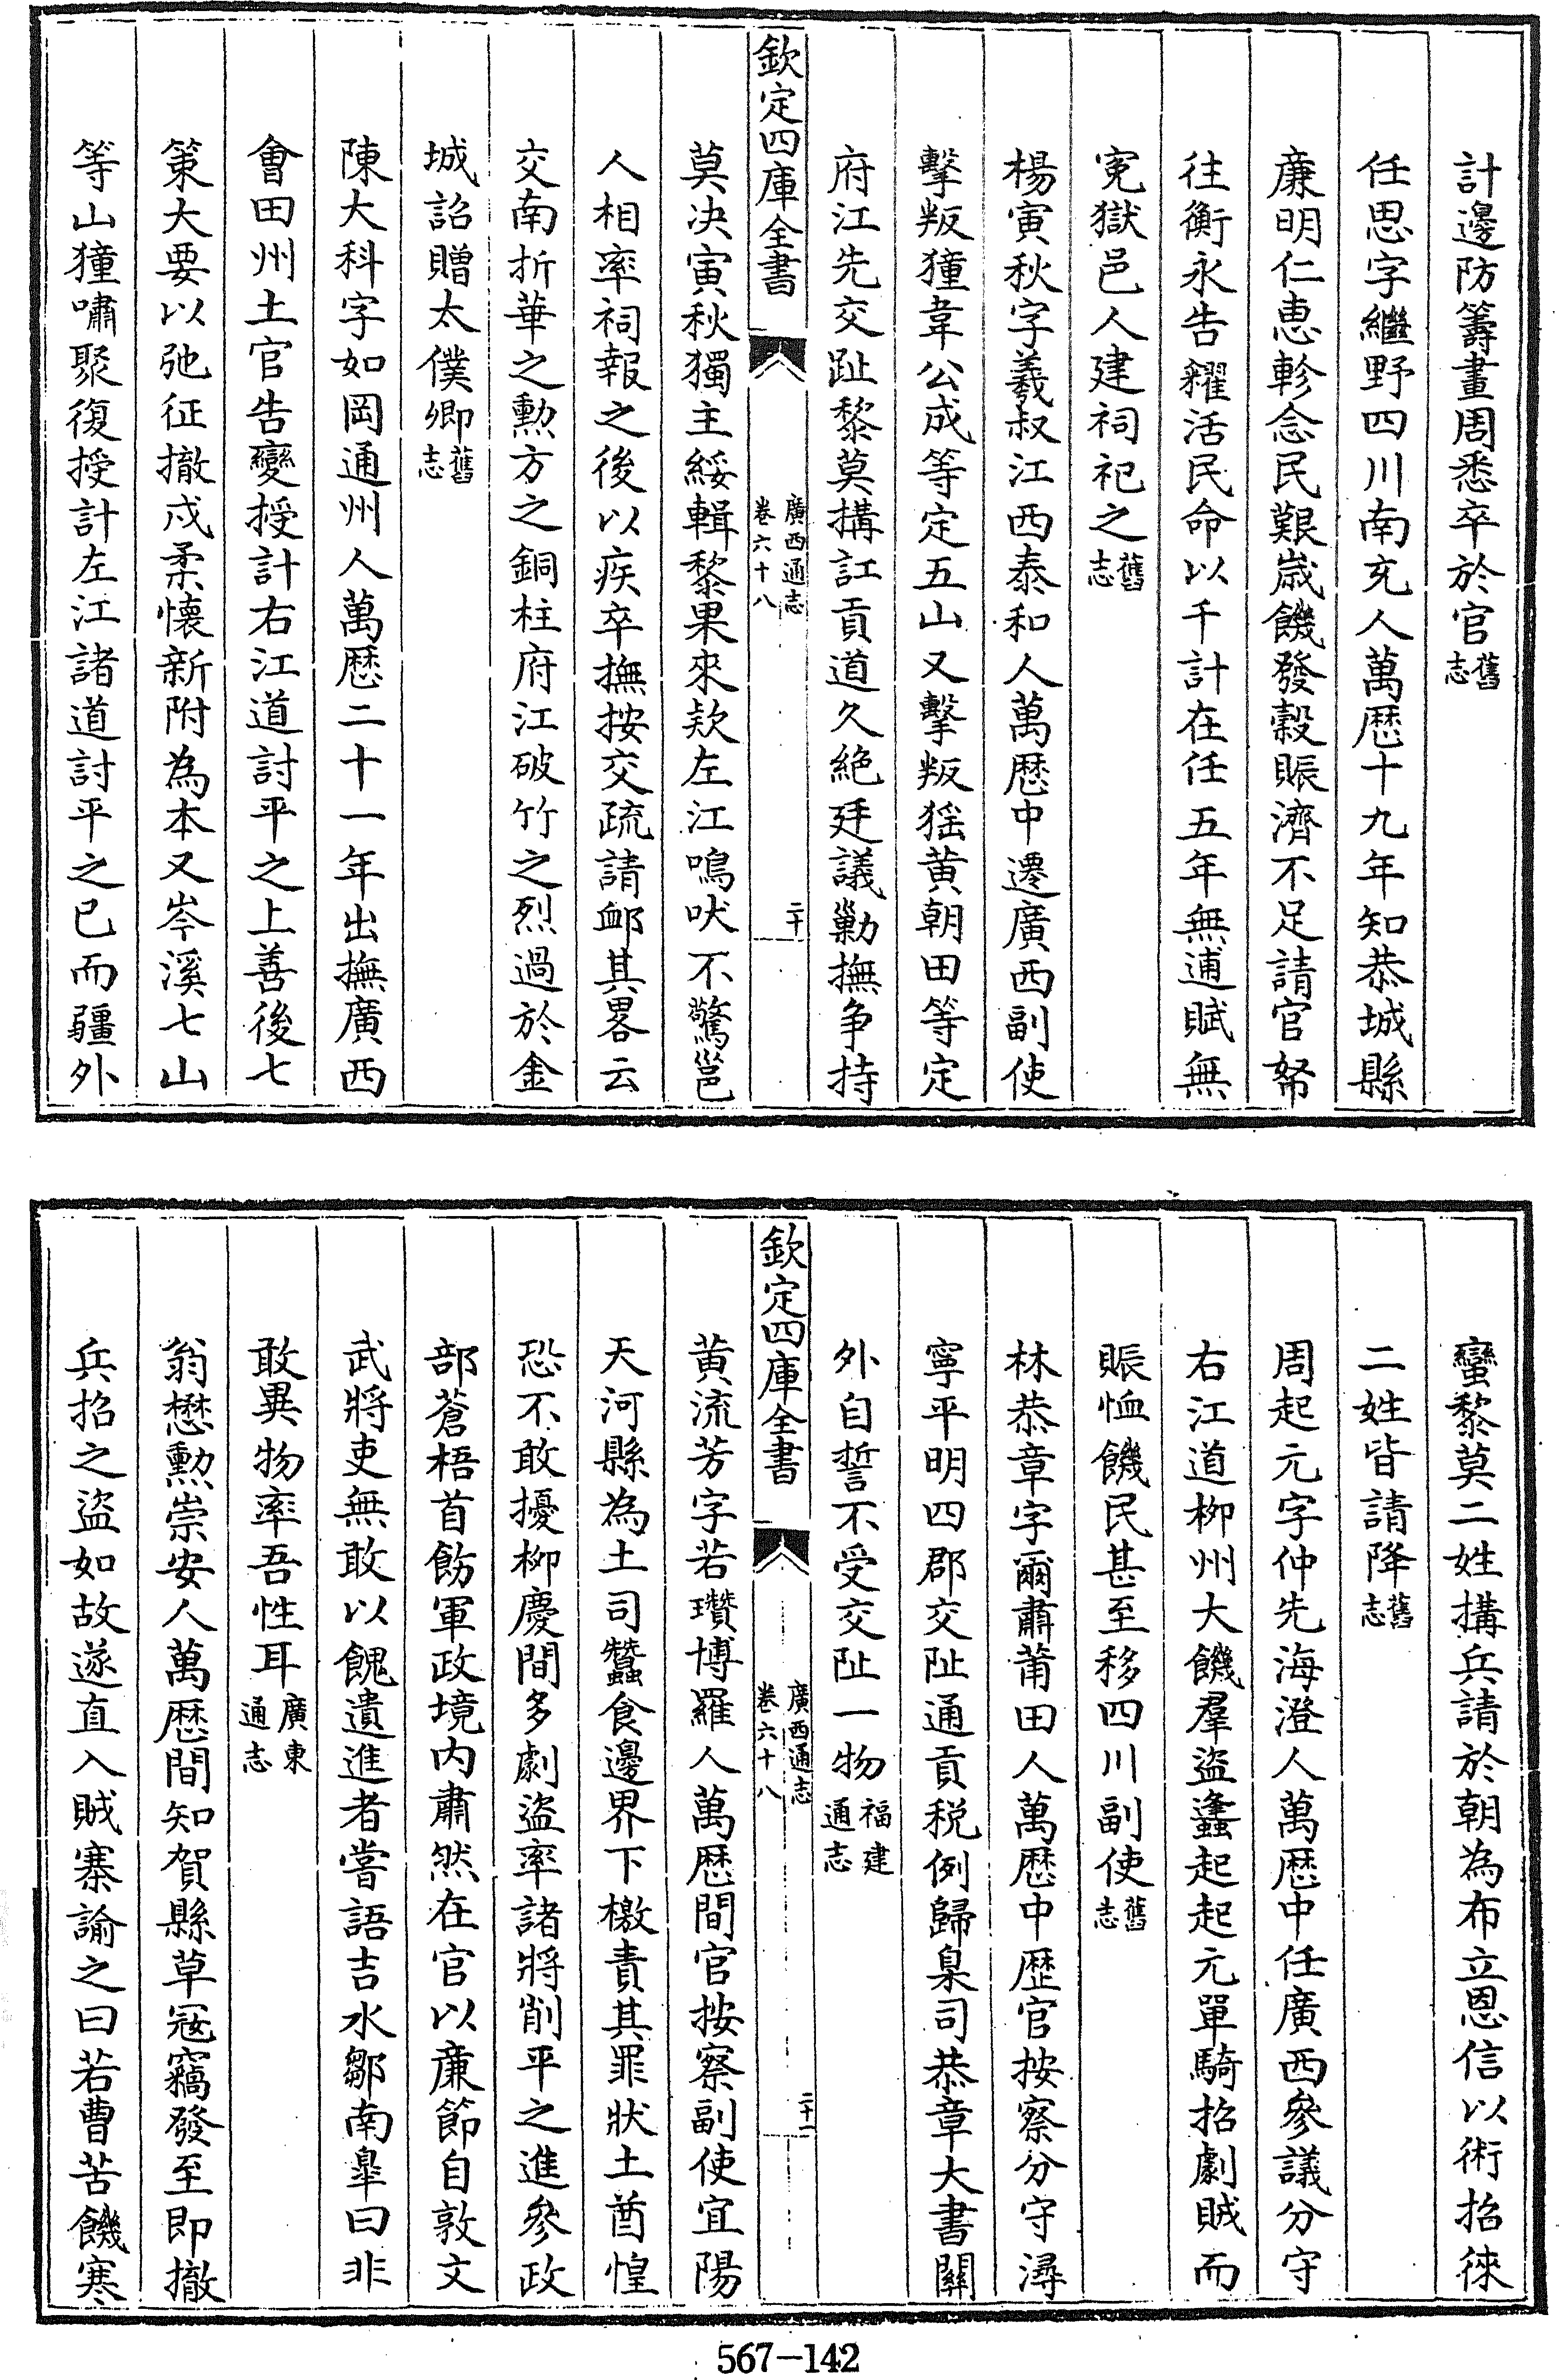 計邊防籌畫周悉卒於官舊志
任思字繼野四川南充人萬歴十九年知恭城縣
廉明仁恵軫念民艱歳饑發穀賑濟不足請官帑
往衡永告糴活民命以千計在任五年無逋賦無
寃獄邑人建祠祀之舊志
楊寅秋字羲叔江西泰和人萬歴中遷廣西副使
擊叛獞韋公成等定五山又擊叛猺黄朝田等定
府江先交趾黎莫搆訌貢道久絶廷議勦撫争持
欽定四庫全書
廣西通志
卷六十八
二十
莫决寅秋獨主綏輯黎果來欵左江鳴吠不驚邕
人相率祠報之後以疾卒撫按交疏請卹其畧云
交南折華之勲方之銅柱府江破竹之烈過於金
城詔贈太僕卿舊志
陳大科字如岡通州人萬歴二十一年出撫廣西
會田州土官告變授計右江道討平之上善後七
策大要以弛征撤戍柔懐新附為本又岑溪七山
等山獞嘯聚復授計左江諸道討平之已而疆外
蠻黎莫二姓搆兵請於朝為布立恩信以術招徠
二姓皆請降舊志
周起元字仲先海澄人萬歴中任廣西參議分守
右江道柳州大饑羣盗蠭起起元單騎招劇賊而
賑恤饑民甚至移四川副使舊志
林恭章字爾肅莆田人萬歴中歴官按察分守潯
寧平明四郡交阯通貢税例歸臬司恭章大書關
外自誓不受交阯一物福建通志
欽定四庫全書
廣西通志
卷六十八
二十一
黄流芳字若瓚博羅人萬歴間官按察副使宜陽
天河縣為土司蠶食邊界下檄責其罪狀土酋惶
恐不敢擾柳慶間多劇盗率諸將削平之進參政
部蒼梧首飭軍政境内肅然在官以廉節自敦文
武將吏無敢以餽遺進者嘗語吉水鄒南臯曰非
敢異物率吾性耳廣東通志
翁懋勲崇安人萬歴間知賀縣草寇竊發至即撤
兵招之盗如故遂直入賊寨諭之曰若曹苦饑寒
567-142